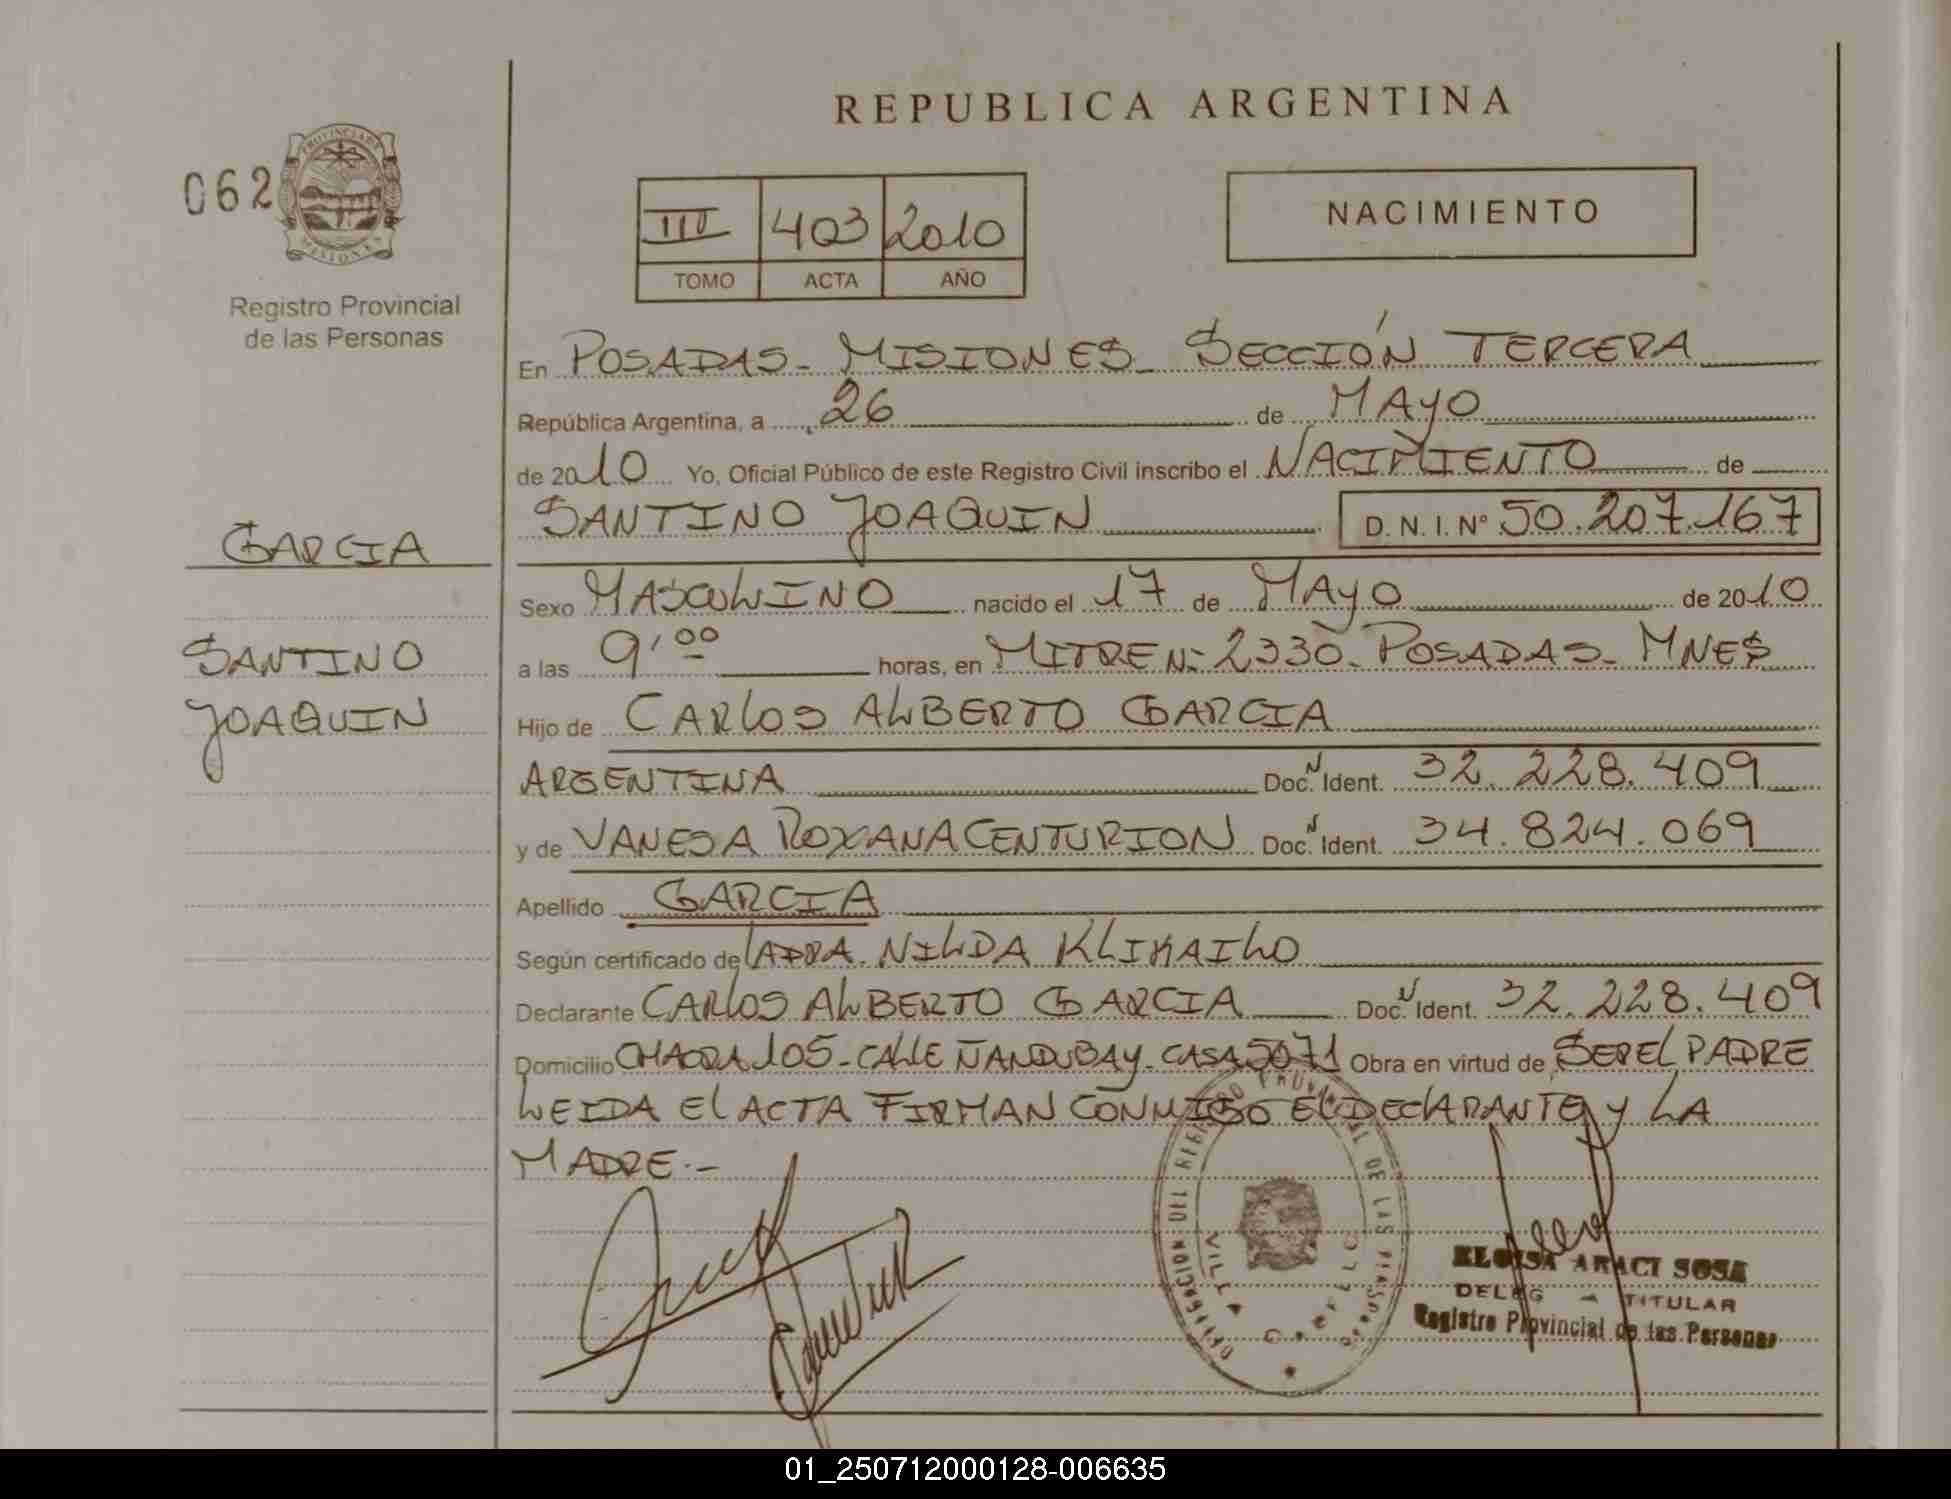 REPUBLICA ARGENTINA
062
PROVINCIA DE
MISIONES
Registro Provincial
de las Personas
III 403 2010
TOMO ACTA AÑO
NACIMIENTO
En POSADAS - MISIONES - SECCIÓN TERCERA
República Argentina, a 26 de MAYO
de 2010 Yo, Oficial Público de este Registro Civil inscribo el NACIMIENTO de
SANTINO JOAQUIN D. N. I. Nº 50.207.167
GARCIA
Sexo MASCULINO nacido el 17 de MAYO de 2010
SANTINO
a las 9,00 horas, en MITRE N: 2330 - POSADAS - MNES
JOAQUIN
Hijo de CARLOS ALBERTO GARCIA
ARGENTINA Doc. N Ident. 32.228.409
y de VANESA ROXANA CENTURION Doc. N Ident. 34.824.069
Apellido GARCIA
Según certificado de LADRA. NILDA KLIMAILO
Declarante CARLOS ALBERTO GARCIA Doc. N Ident. 32.228.409
Domicilio CHACRA 105 - CALLE ÑANDUBAY - CASA 5071 Obra en virtud de SER EL PADRE
LEIDA EL ACTA FIRMAN CONMIGO EL DECLARANTE Y LA
MADRE.-
DELEGACION DEL REGISTRO PROVINCIAL DE LAS PERSONAS
VILLA CABELLO
ELOISA ARACI SOSA
DELEG A TITULAR
Registro Provincial de las Personas
01_250712000128-006635